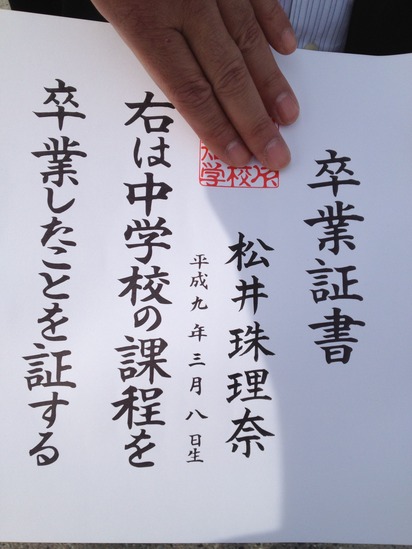 卒業証書
松井珠理奈
平成九年三月八日生
右は中学校の課程を
卒業したことを証する
学校